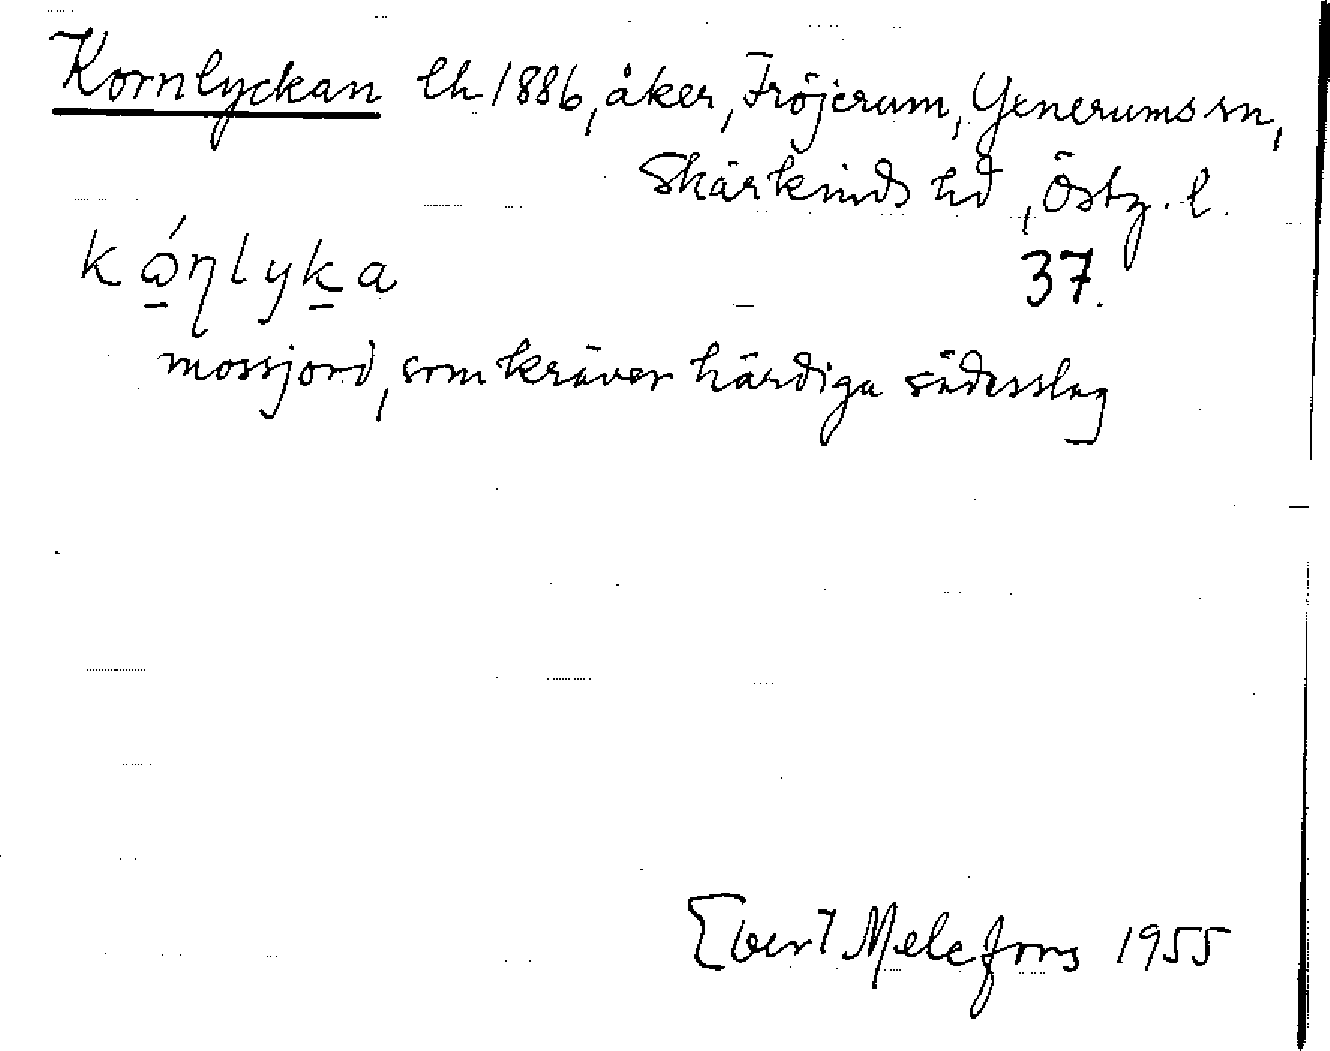 Kornlyckan lh 1886, åker, Fröjerum, Yxnerums sn,
Skärkinds hd, Östg. l.
kɷ́ɳlyka 37.
mossjord, som kräver härdiga sädesslag
Evert Melefors 1955